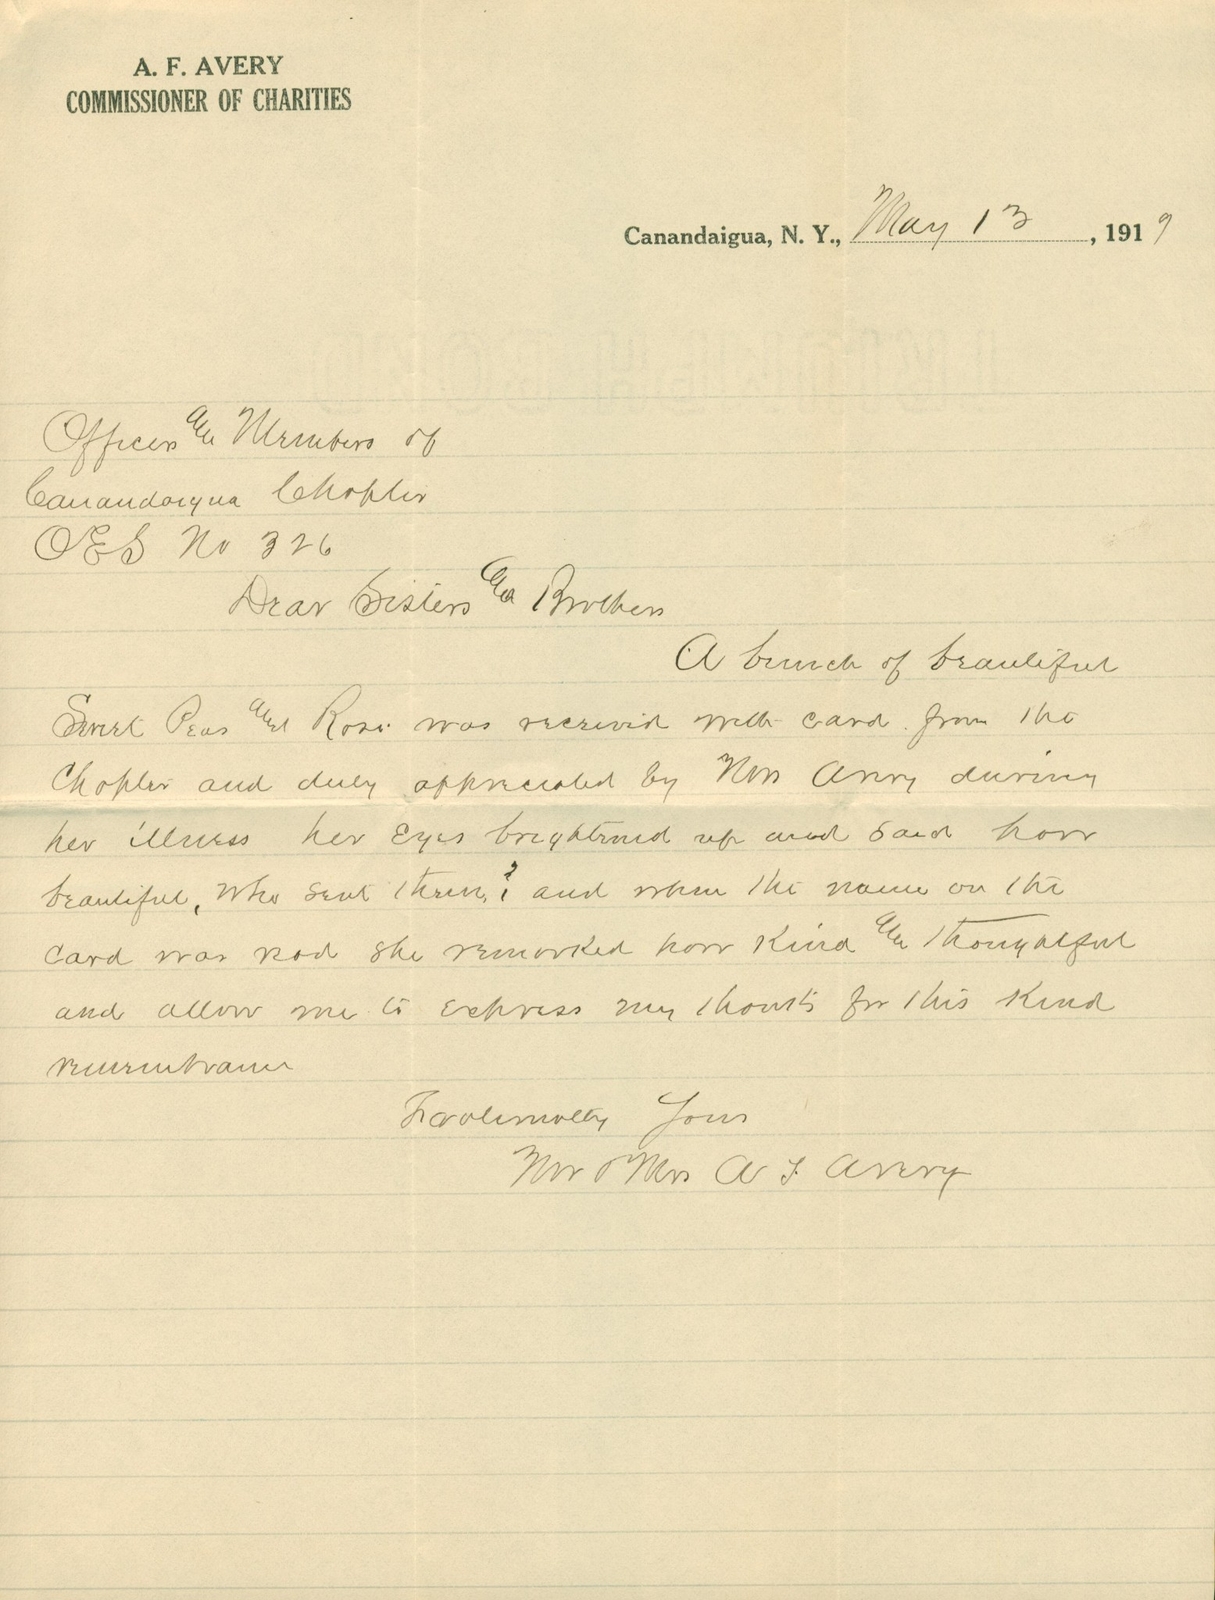 A. F. AVERY
COMMISSIONER OF CHARITIES
Canandaigua, N. Y., May 13, 1919
Officers and Members of
Canandaigua Chapter
OES No 326
Dear Sisters and Brothers
A bunch of beautiful
Sweet Peas and Roses was received with card from the
Chapter and duly appreciated by Mrs Avery during
her illness her Eyes brightened up and said how
beautiful, Who sent them? and when the name on the
card was read she remarked how kind and thoughtful
and allow me to express my thanks for this kind
remembrance
Fraternally Yours
Mr & Mrs A F Avery